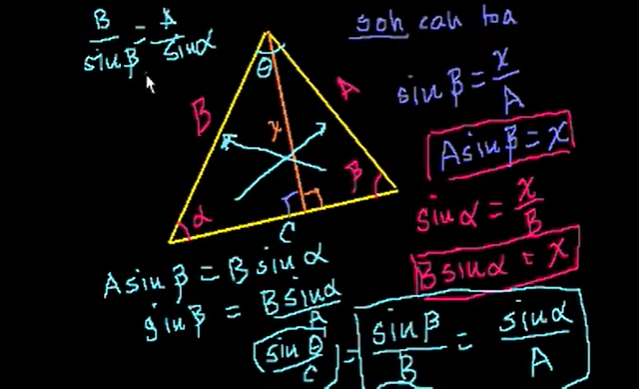 B/sinβ = A/sinα
soh cah toa
sinβ = x/A
Asinβ = x
sinα = x/B
Bsinα = x
θ
B
A
x
α
β
C
Asinβ = Bsinα
sinβ = Bsinα/A
sinθ/C = sinβ/B = sinα/A